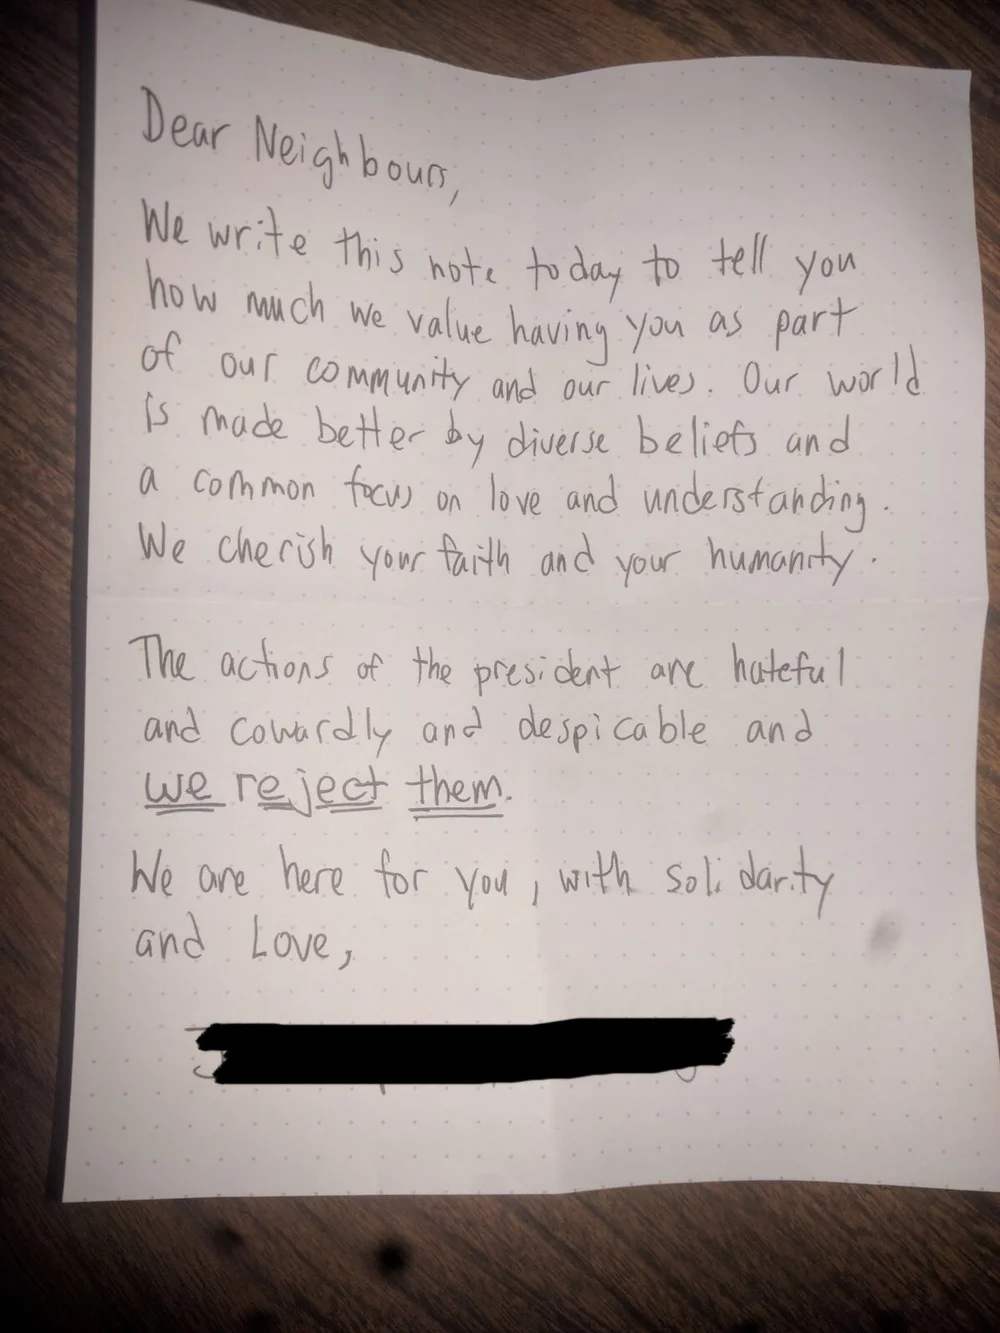 Dear Neighbours,
We write this note today to tell you
how much we value having you as part
of our community and our lives. Our world
is made better by diverse beliefs and
a common focus on love and understanding.
We cherish your faith and your humanity.
The actions of the president are hateful
and cowardly and despicable and
we reject them.
We are here for you, with solidarity
and Love,